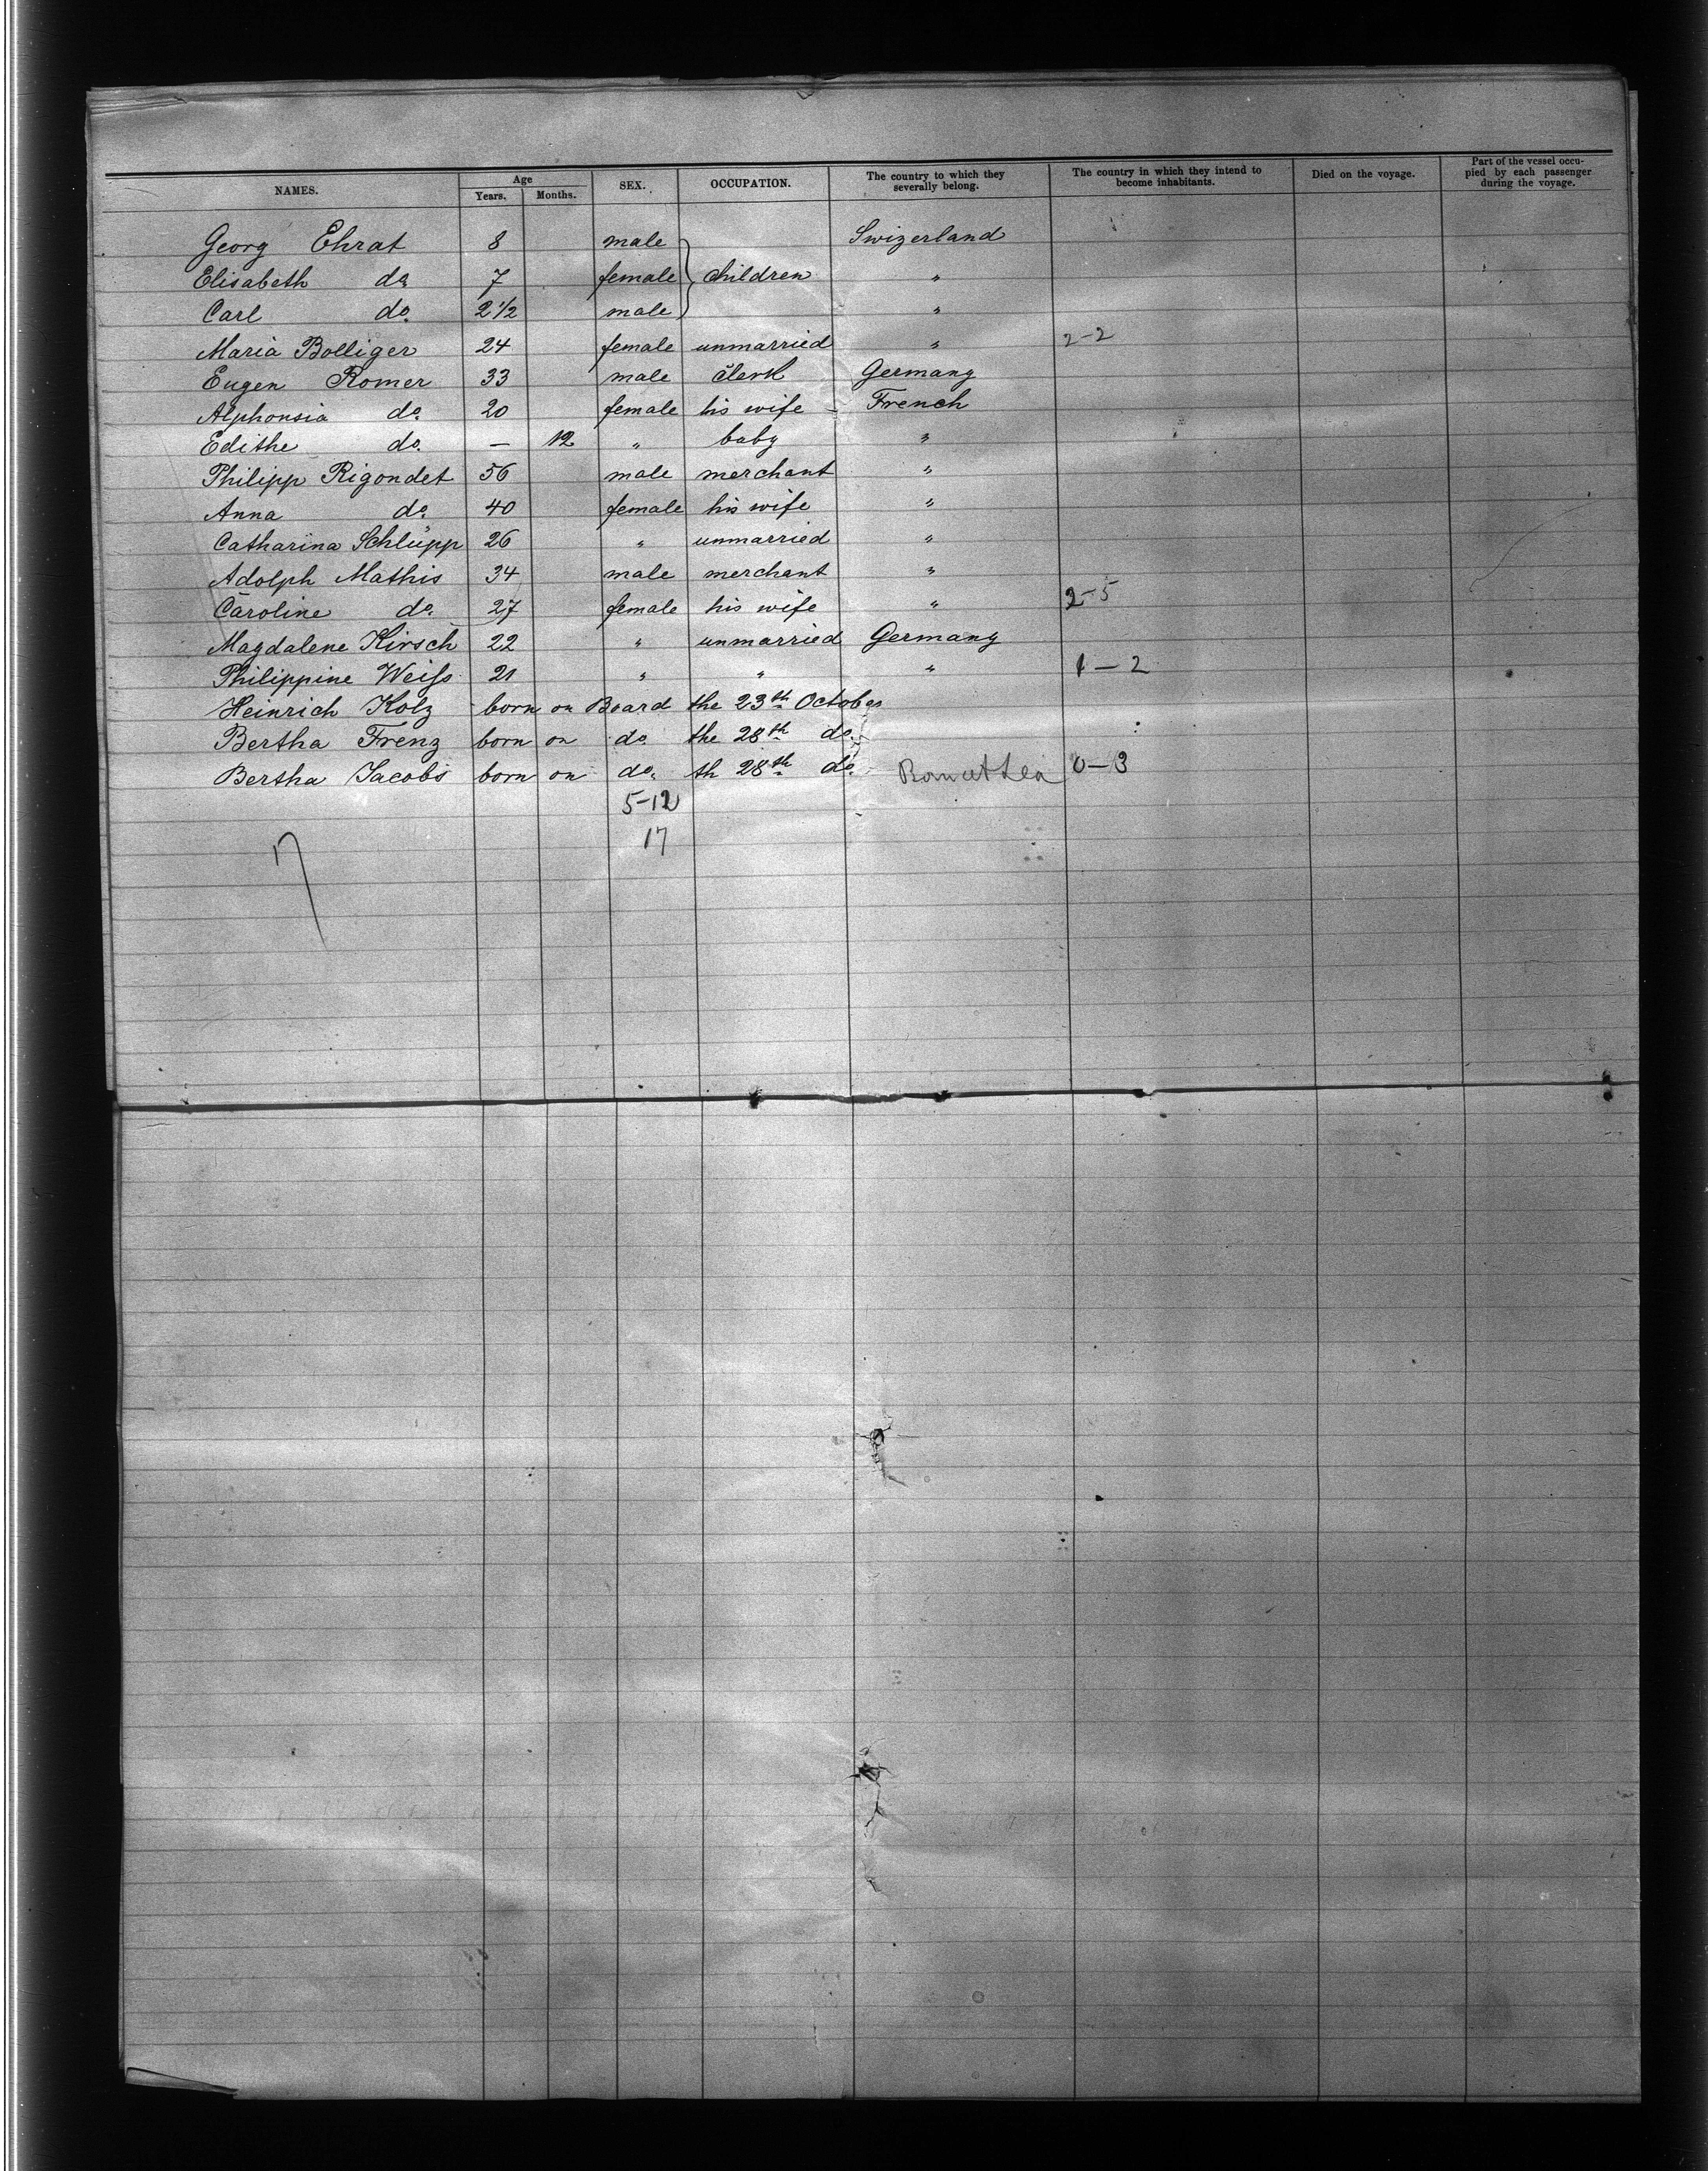 NAMES. Age Years. Months. SEX. OCCUPATION. The country to which they severally belong. The country in which they intend to become inhabitants. Died on the voyage. Part of the vessel occupied by each passenger during the voyage.
Georg Ehrat 8 male Swizerland
Elisabeth do. 7 female children "
Carl do. 2 1/2 male "
Maria Bolliger 24 female unmarried " 2-2
Eugen Romer 33 male clerk Germany
Alphonsia do. 20 female his wife - French
Edithe do. — 12 " baby "
Philipp Rigondet 56 male merchant "
Anna do. 40 female his wife "
Catharina Schlüpp 26 " unmarried "
Adolph Mathis 34 male merchant "
Caroline do. 27 female his wife " 2-5
Magdalene Kirsch 22 " unmarried Germany
Philippine Weiss 21 " " " 1-2
Heinrich Kolz born on Board the 23th October
Bertha Frenz born on do. the 28th do.
Bertha Jacobs born on do. th 28th do. 0-3
5-12
17